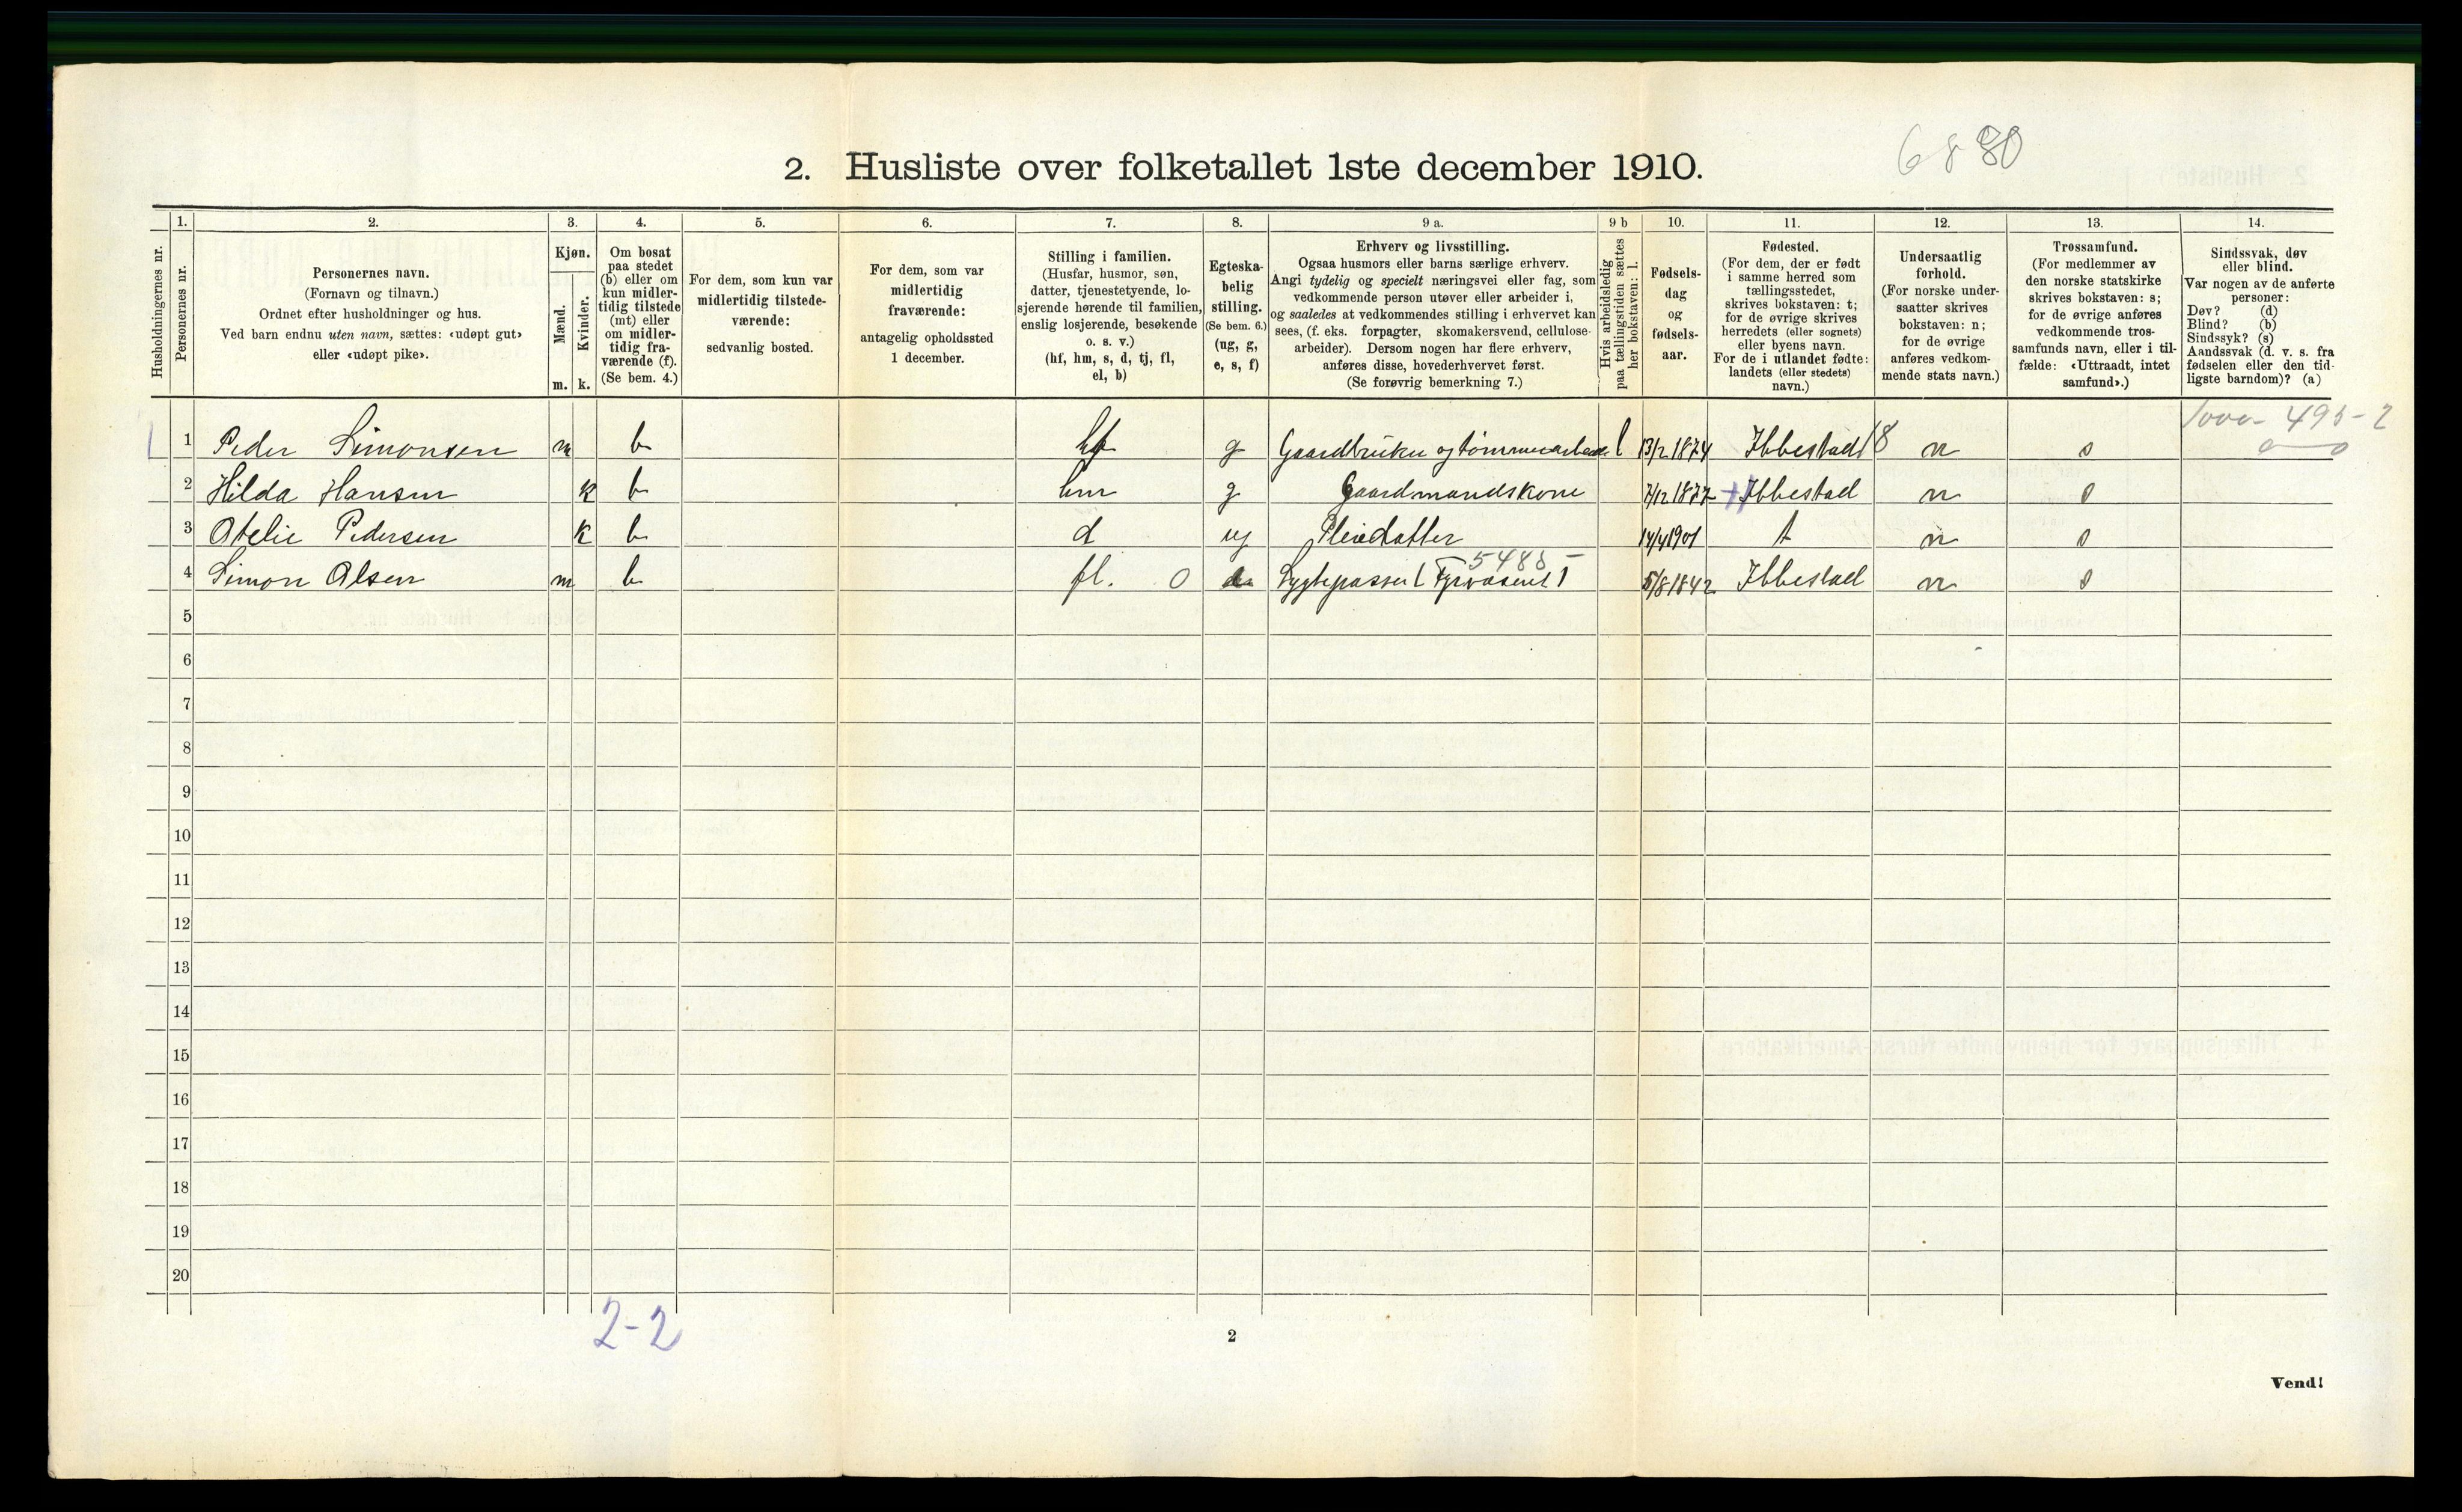 6880
2. Husliste over folketallet 1ste december 1910.
Husholdningernes nr.
1. Personernes nr.
2. Personernes navn.
(Fornavn og tilnavn.)
Ordnet efter husholdninger og hus.
Ved barn endnu uten navn, sættes: «udøpt gut»
eller «udøpt pike».
3. Kjøn.
Mænd. m.
Kvinder. k.
4. Om bosat
paa stedet
(b) eller om
kun midler-
tidig tilstede
(mt) eller
om midler-
tidig fra-
værende (f).
(Se bem. 4.)
5. For dem, som kun var
midlertidig tilstede-
værende:
sedvanlig bosted.
6. For dem, som var
midlertidig
fraværende:
antagelig opholdssted
1 december.
7. Stilling i familien.
(Husfar, husmor, søn,
datter, tjenestetyende, lo-
sjerende hørende til familien,
enslig losjerende, besøkende
o. s. v.)
(hf, hm, s, d, tj, fl,
el, b)
8. Egteska-
belig
stilling.
(Se bem. 6.)
(ug, g,
e, s, f)
9 a. Erhverv og livsstilling.
Ogsaa husmors eller barns særlige erhverv.
Angi tydelig og specielt næringsvei eller fag, som
vedkommende person utøver eller arbeider i,
og saaledes at vedkommendes stilling i erhvervet kan
sees, (f. eks. forpagter, skomakersvend, cellulose-
arbeider). Dersom nogen har flere erhverv,
anføres disse, hovederhvervet først.
(Se forøvrig bemerkning 7.)
9 b Hvis arbeidsledig
paa tællingstiden sættes
her bokstaven: l.
10. Fødsels-
dag
og
fødsels-
aar.
11. Fødested.
(For dem, der er født
i samme herred som
tællingsstedet,
skrives bokstaven: t;
for de øvrige skrives
herredets (eller sognets)
eller byens navn.
For de i utlandet fødte:
landets (eller stedets)
navn.)
12. Undersaatlig
forhold.
(For norske under-
saatter skrives
bokstaven: n;
for de øvrige
anføres vedkom-
mende stats navn.)
13. Trossamfund.
(For medlemmer av
den norske statskirke
skrives bokstaven: s;
for de øvrige anføres
vedkommende tros-
samfunds navn, eller i til-
fælde: «Uttraadt, intet
samfund».)
14. Sindssvak, døv
eller blind.
Var nogen av de anførte
personer:
Døv? (d)
Blind? (b)
Sindssyk? (s)
Aandssvak (d. v. s. fra
fødselen eller den tid-
ligste barndom)? (a)
1000 - 495 - 2
0 — 0
1 Peder Simonsen m b hf g Gaardbruker og tømmerarbeid. l 13/2 1874 Ibbestad 18 n s
2 Hilda Hansen k b hm g Gaardmandskone 7/12 1877 Ibbestad n s
3 Atelie Pedersen k b d ug Pleiedatter 14/4 1901 t n s
5488 -
4 Simon Olsen m b fl. 0 Lygtepasser (Fyrvæsenet) 5/8 1842 Ibbestad n s
5
6
7
8
9
10
11
12
13
14
15
16
17
18
19
20
2-2
2
Vend!